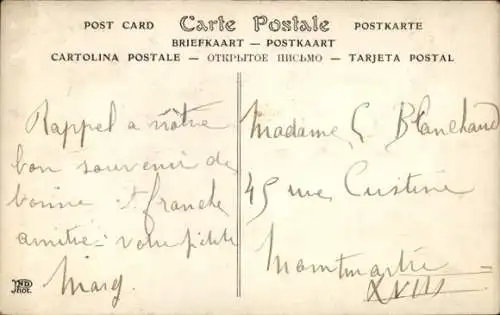 POST CARD Carte Postale POSTKARTE
BRIEFKAART — POSTKAART
CARTOLINA POSTALE — ОТКРЫТОЕ ПИСЬМО — TARJETA POSTAL
Rappel a nôtre
bon souvenir de
bonne et franche
amitié — votre petite
Mary.
Madame G Blanchard
45 rue Custine
Montmartre
XVIII
ND
Phot.